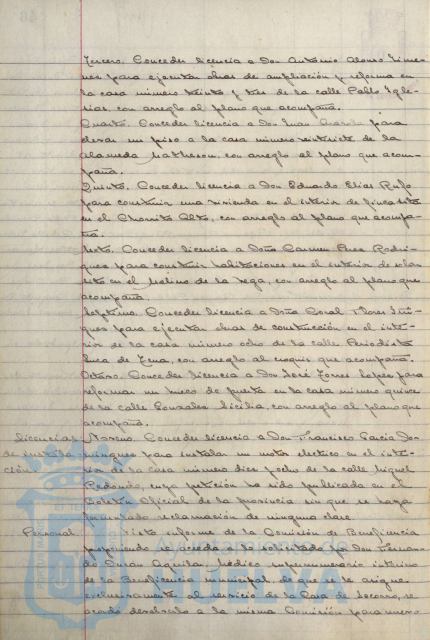 Tercero. Conceder licencia a Don Antonio Alonso Gime-
nes para ejecutar obras de ampliación y reforma en
la casa número treinta y tres de la calle Pablo Igle-
sias, con arreglo al plano que acompaña.
Cuarto. Conceder licencia a Don Juan para
elevar un piso a la casa número veintisiete de la
Alameda Matheson, con arreglo al plano que acom-
paña.
Quinto. Conceder licencia a Don Eduardo Elias Rufo
para construir una vivienda en el interior de finca sita
en el Chorrito Alto, con arreglo al plano que acompa-
ña.
Sexto. Conceder licencia a Doña Carmen Perea Rodri-
gues para construir habitaciones en el interior de solar
sito en el Molino de la Vega, con arreglo al plano que
acompaña.
Septimo. Conceder licencia a Doña Coral Flores Iñi-
gues para ejecutar obras de construcción en el inte-
rior de la casa número ocho de la calle Periodista
Luca de Tena, con arreglo al croquis que acompaña.
Octavo. Conceder licencia a Don José Torres Lopes para
reformar un hueco de puerta en la casa número quince
de la calle Gonzalez Sicilia, con arreglo al plano que
acompaña.
licencias Noveno. Conceder licencia a Don Francisco Garcia Do-
de instala- mingues para instalar un motor electrico en el inte-
ción rior de la casa número dies y ocho de la calle Miguel
Redondo, cuya petición ha sido publicada en el
Boletin Oficial de la provincia sin que se haya
presentado reclamación de ninguna clase
Personal. Visto informe de la Comisión de Beneficencia
proponiendo se acceda a lo solicitado por Don Fernan-
do Duran Aguilar, Médico supernumerario interino
de la Beneficencia municipal, de que se le asigne
exclusivamente al servicio de la Casa de Socorro, se
acordó devolverlo a la misma Comisión para nuevo
Ayuntamiento de
HUELVA